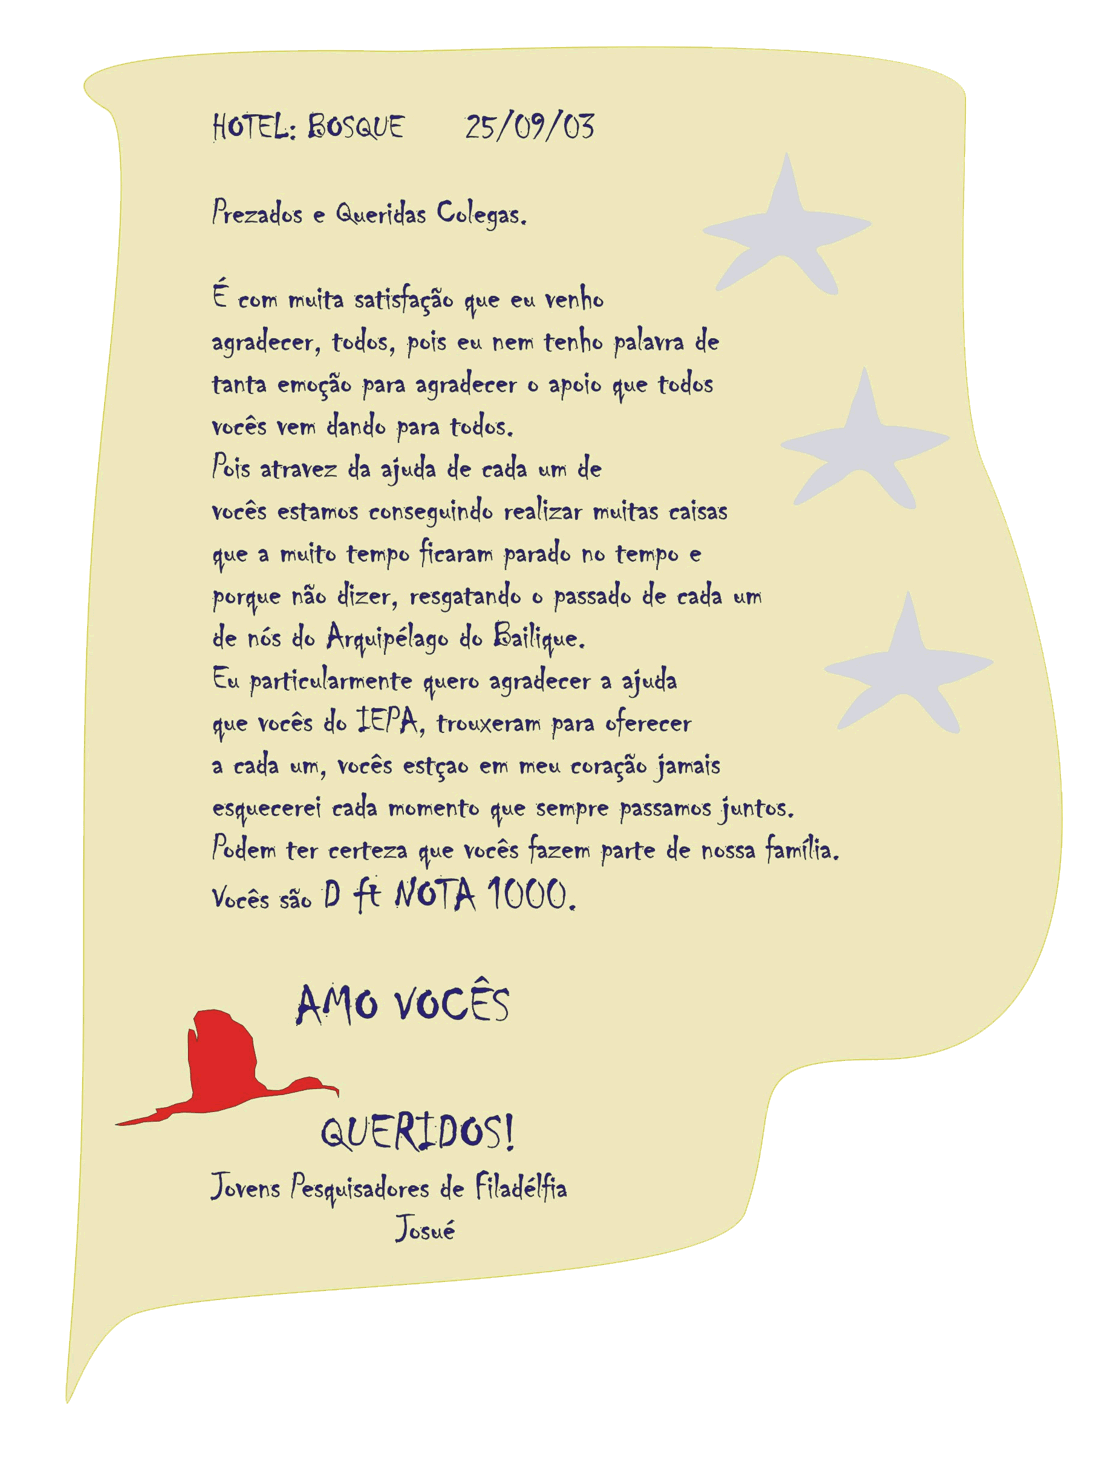 HOTEL: BOSQUE 25/09/03
Prezados e Queridas Colegas.
É com muita satisfação que eu venho
agradecer, todos, pois eu nem tenho palavra de
tanta emoção para agradecer o apoio que todos
vocês vem dando para todos.
Pois atravez da ajuda de cada um de
vocês estamos conseguindo realizar muitas caisas
que a muito tempo ficaram parado no tempo e
porque não dizer, resgatando o passado de cada um
de nós do Arquipélago do Bailique.
Eu particularmente quero agradecer a ajuda
que vocês do IEPA, trouxeram para oferecer
a cada um, vocês estçao em meu coração jamais
esquecerei cada momento que sempre passamos juntos.
Podem ter certeza que vocês fazem parte de nossa família.
Vocês são D ft NOTA 1000.
AMO VOCÊS
QUERIDOS!
Jovens Pesquisadores de Filadélfia
Josué